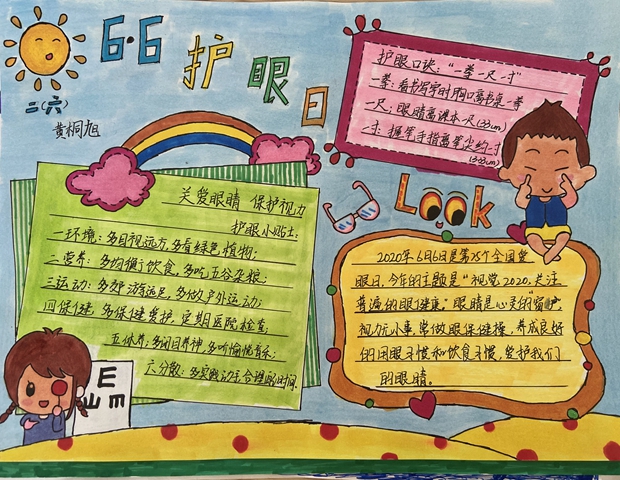 6·6 护眼日
二(六)
黄桐旭
护眼口诀:“一拳一尺一寸”
一拳:看书写字时胸口离书桌一拳
一尺:眼睛离课本一尺(33cm)
一寸:握笔手指离笔尖约一寸
(3.33cm)
Look
关爱眼睛 保护视力
护眼小贴士:
一环境:多目视远方,多看绿色植物;
二营养:多均衡饮食,多吃五谷杂粮;
三运动:多郊游远足,多做户外运动;
四保健:多保健爱护,定期医院检查;
五休养:多闭目养神,多听愉悦音乐;
六分散:多实践动手合理用时间.
E
m
2020年6月6日是第25个全国爱
眼日,今年的主题是“视觉2020,关注
普遍的眼健康”眼睛是心灵的“窗户”
视力无小事,常做眼保健操,养成良好
的用眼习惯和饮食习惯,爱护我们
的眼睛。